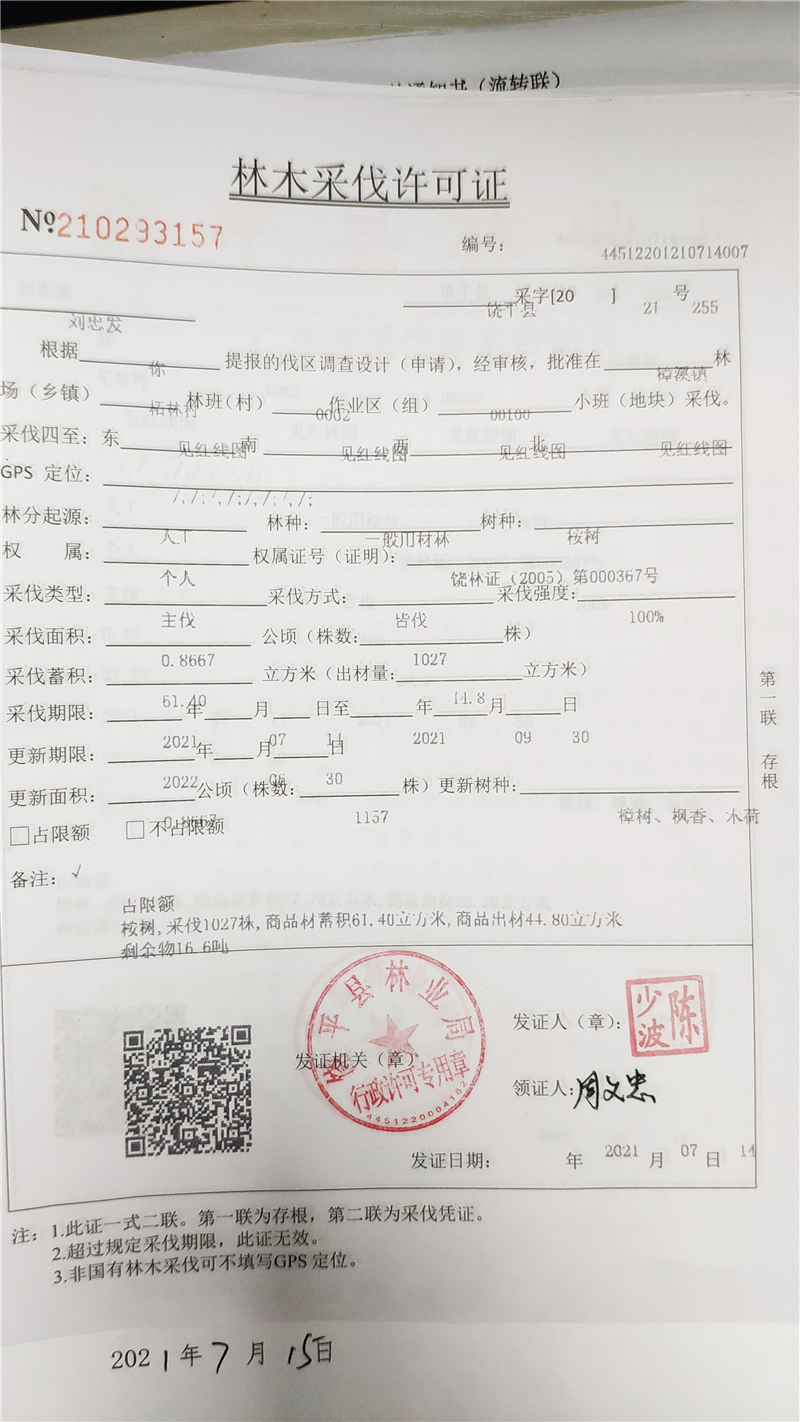 通知书（流转联）
林木采伐许可证
Nº210293157
编号： 44512201210714007
采字[20 ] 号
饶平县 21 255
刘忠发
根据 你 提报的伐区调查设计（申请），经审核，批准在 樟溪镇 林
场（乡镇） 林班（村） 作业区（组） 小班（地块）采伐。
柘林村 0002 00100
采伐四至：东 南 西 北
见红线图 见红线图 见红线图 见红线图
GPS 定位：
/,/;/,/;/,/;/,/;
林分起源： 林种： 树种：
人工 一般用材林 桉树
权 属： 权属证号（证明）：
个人 饶林证（2005）第000367号
采伐类型： 采伐方式： 采伐强度：
主伐 皆伐 100%
采伐面积： 公顷（株数： 株）
0.8667 1027
采伐蓄积： 立方米（出材量： 立方米）
61.40 44.8
采伐期限： 年 月 日至 年 月 日
2021 07 14 2021 09 30
更新期限： 年 月 日
2022 06 30
更新面积： 公顷（株数： 株）更新树种：
0.8667 1157 樟树、枫香、木荷
□占限额 □不占限额
备注： √
占限额
桉树,采伐1027株,商品材蓄积61.40立方米,商品出材44.80立方米
剩余物16.6吨
第一联 存根
饶平县林业局
行政许可专用章
发证机关（章）
发证人（章）：
陈少波
领证人：周文忠
发证日期： 年 月 日
2021 07 14
注：1.此证一式二联。第一联为存根，第二联为采伐凭证。
2.超过规定采伐期限，此证无效。
3.非国有林木采伐可不填写GPS 定位。
2021年7月15日